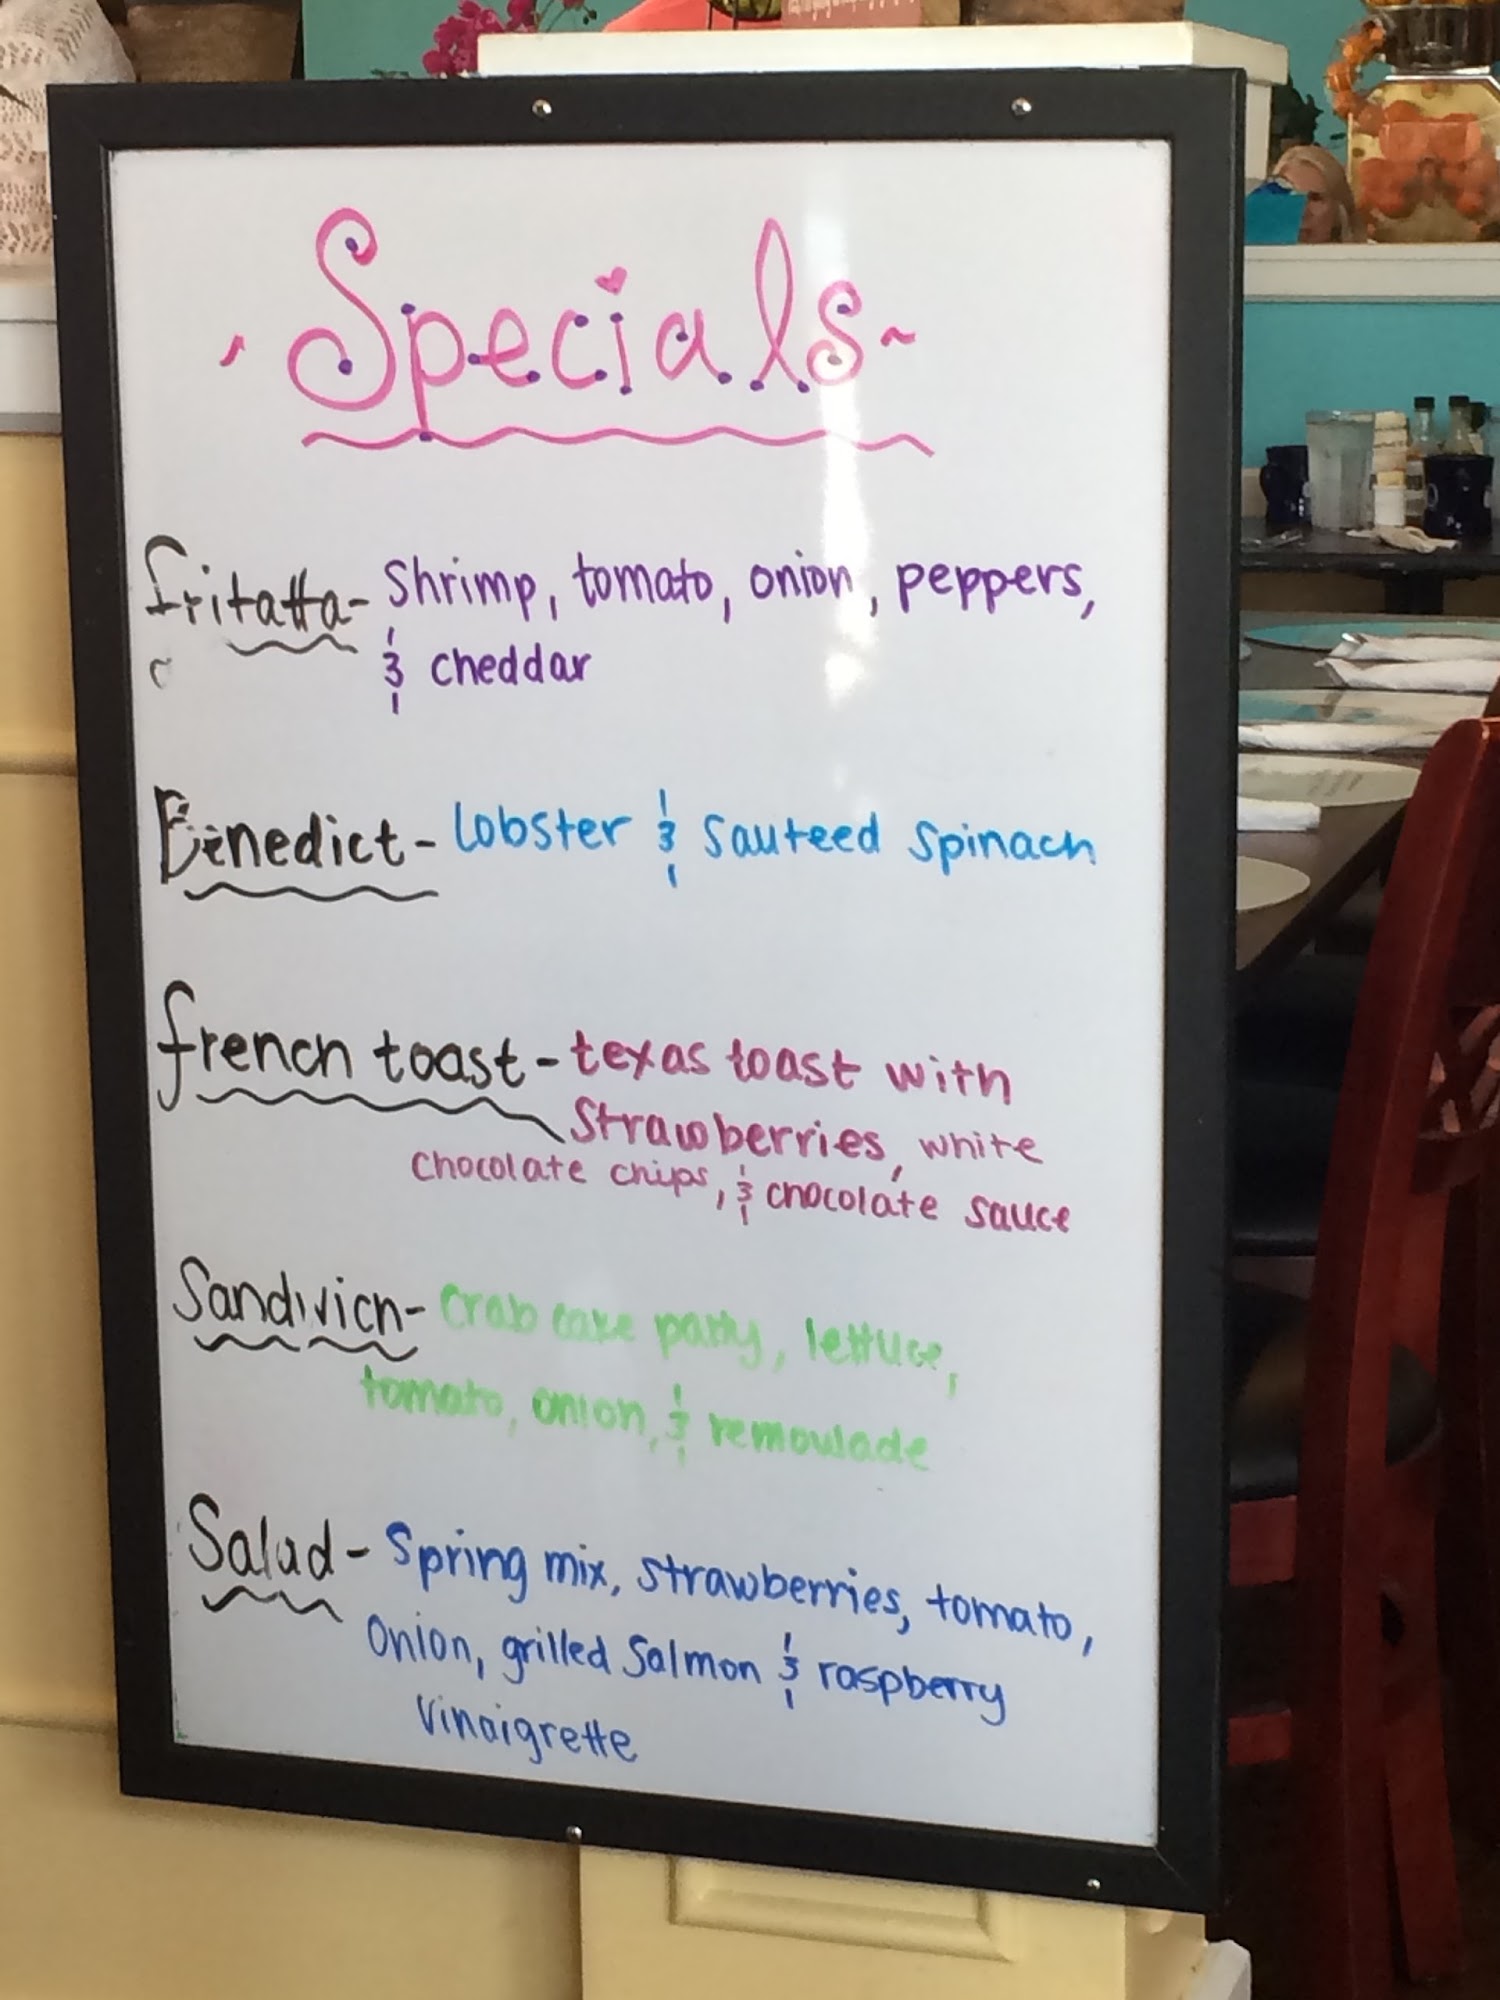 Specials
fritatta- Shrimp, tomato, onion, peppers,
& cheddar
Benedict- lobster & sauteed spinach
french toast- texas toast with
strawberries, white
chocolate chips, & chocolate sauce
Sandwich- crab cake patty, lettuce,
tomato, onion, & remoulade
Salad- Spring mix, strawberries, tomato,
onion, grilled Salmon & raspberry
vinaigrette